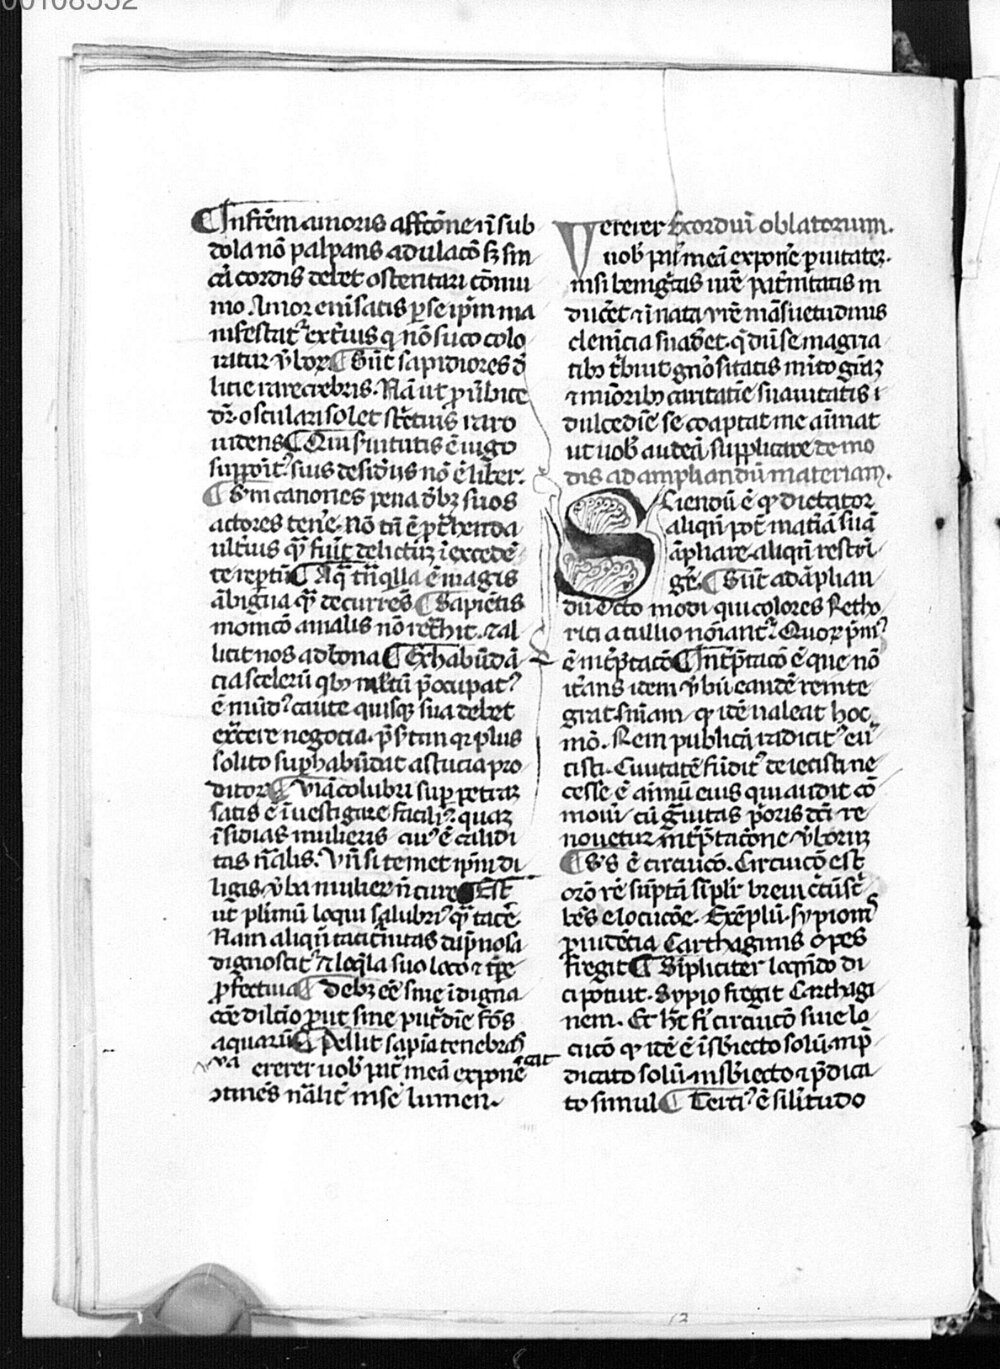 00108552
¶ Insitēm amoris affcōne ⁊ ī sub
dola nō palpans adulacō sꝫ sin
cā cordis debet ostentari cōmu
nio. Amor enī satis ꝑ se ipm̄ ma
nifestatᷣ exͭius qͥ nō suco colo
ratur ṽbor. ¶ Sūt sapidiores d̄
licie rare crebris. Nā ut ꝓ ṽbͦ ice
dr̄. osculari solet scͥtius raro
uidens ¶ Quisͥ uirtutis ē uirgo
suppōit. sius desid̓iis nō ē liber.
actores ten̄e. nō tm̄ ē ꝑrͭhenda
ultͥius qͣꝫ fuit delictuꝫ īexcede
te reptū ¶ Aqͣ tͣnqͥlla ē magis
ābigua qͣꝫ decurrēs ¶ Sapiētis
moniͦcō aīalis nō retͣhit. ⁊ al
licit nos ad bona ¶ Exhabūdā
cia scelerū qͥbꝫ multū p̄ocupatᷣ
ē mūdᷣ caute quisqꝫ sua debet
ex̄cere negocia. p̄sͬtim qꝛ plus
solito supͣhabūdat astucia pro
ditorꝫ ¶ Viā colubri sup petraꝫ
satis ē īuestigare faciliᷣ quaꝫ
īsidias mulieris curᷣ ē calidi
tas nͣalis. Vn̄ si temet ipm̄ di
ligis ṽba mulierꝫ n̄ cures ¶ Est
ut̄ plͥmū loqui salubriᷣ qͣꝫ tacē
Nam aliqn̄ tacitͥnitas dāpnosa
dignoscitᷣ ⁊ loqͣla suo loco ⁊ tp̄e
ꝓfectiua ¶ Debꝫ eē sine īdigna
cōe dilcīo ꝓut sine putͬdīe fōs
aquarū ¶ Pellit sapīa tenebras
ererer uobͥ pat̓ meā exponē
otines nāalit̓ in se lumen.
Vererer Exordiū oblatorum.
uobͥ pat̓ meā exponē ꝑuitateꝫ.
nisi benigͥtas ur̄e patͬnitatis in
ducēt ⁊ īnata vr̄e māsuetudinis
clemēcia suad̓et. qͥ dū se magna
tibꝫ tͥbuit gn̄ositatis mͥto gͣaꝫ
⁊ mīoribꝫ caritatīe suauitatis ī
dulcedīe se coaptat me aīmat
ut uobͥ audeā supplicare de mo
dis ad ampliandū materiam.
Sciendū ē qꝫ dictator
aliqn̄ pōt matͥā suā
āpliare. aliqn̄ restrī
gē. ¶ Sūt ad āplian
dū octo modi qui colores Retho
rici a tullio nōianͭᷣ. Quoꝝ pͥmᷣ
ē int̓p̄tacō ¶ Int̓p̄tacō ē que nō
it̓ans idem ṽbū eandē rem īte
grat. sn̄iam. qꝫ idē ualeat hoc
mō. Rem publicā radicitᷣ eu̓
tisti. Ciuitatē fūditᷣ deiecisti ne
cesse ē aīmū eius qui audit cō
moūi cū gͣuitas p̓oris dcī re
nouetur int̓p̄tacōne ṽboruꝫ
¶ Sͣs ē circuicō. Circuicō est
orō rē sūptā simplͥr breui cͥcūsc̓
bēs elocucōe. Exēplū. sypionͥˢ
ꝓuidēcia Carthaginis opes
fregit ¶ Sīpliciter loqͣndo di
ci potuit. Sypio fregit Carthagi
nem. Et hͨ fit circuicō siue lo
cucō qꝫ idē ē ī sbͥiecto solū. inp̄
dicato solū. in sbͥiecto ⁊ p̄dica
to simul ¶ Terciᷣ ē silͥitudo